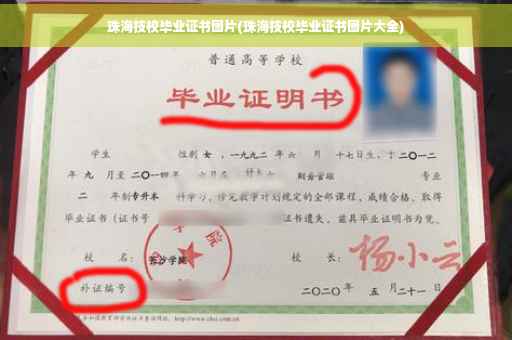 珠海技校毕业证书图片(珠海技校毕业证书图片大全)
普通高等学校
毕业证明书
学生 性别 女 ，一九九二年 六 月 十七日生，于二〇一二
年 九 月至 二〇一四 年 六月在 财务管理 专业
二 年制 专升本 科学习，修完教学计划规定的全部课程，成绩合格，取得
毕业证书（证书号 证书遗失，兹具毕业证明书为凭。
校 名： 长沙学院 校 长： 杨小云
补证编号 二〇二〇年 五 月二十一日